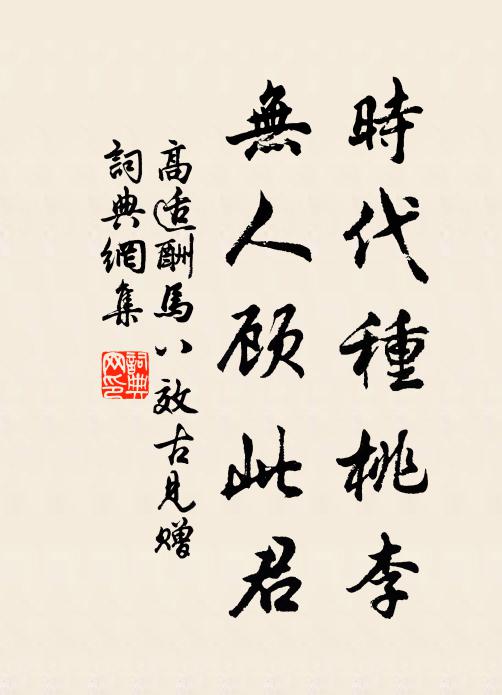 時代種桃李
無人顾此君
高适酬馬八效古見赠
詞典網集
詞典
网印